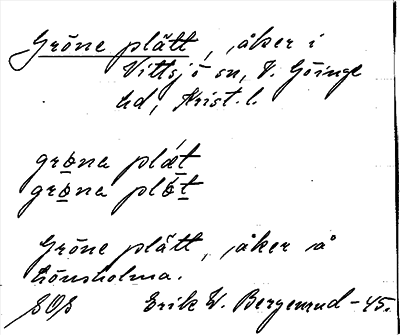 Gröne plätt, åker i
Vittsjö sn, V. Göinge
hd, Krist. l.
grøna plæt
grøna pløt
Gröne plätt, åker å
Hönsholma.
SOS Erik W. Bergenrud -45.